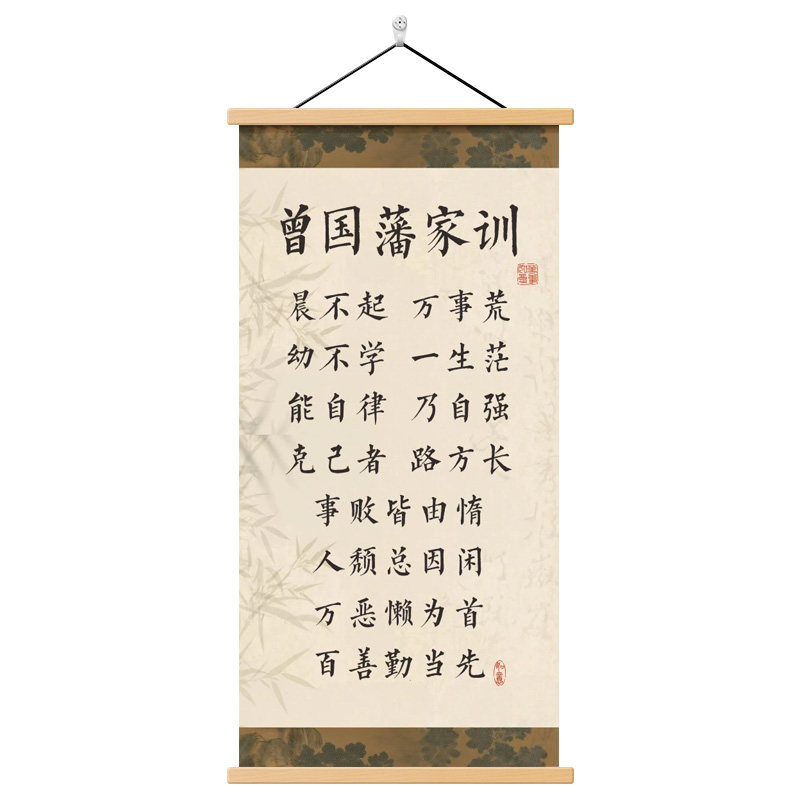 曾国藩家训
晨不起 万事荒
幼不学 一生茫
能自律 乃自强
克己者 路方长
事败皆由惰
人颓总因闲
万恶懒为首
百善勤当先